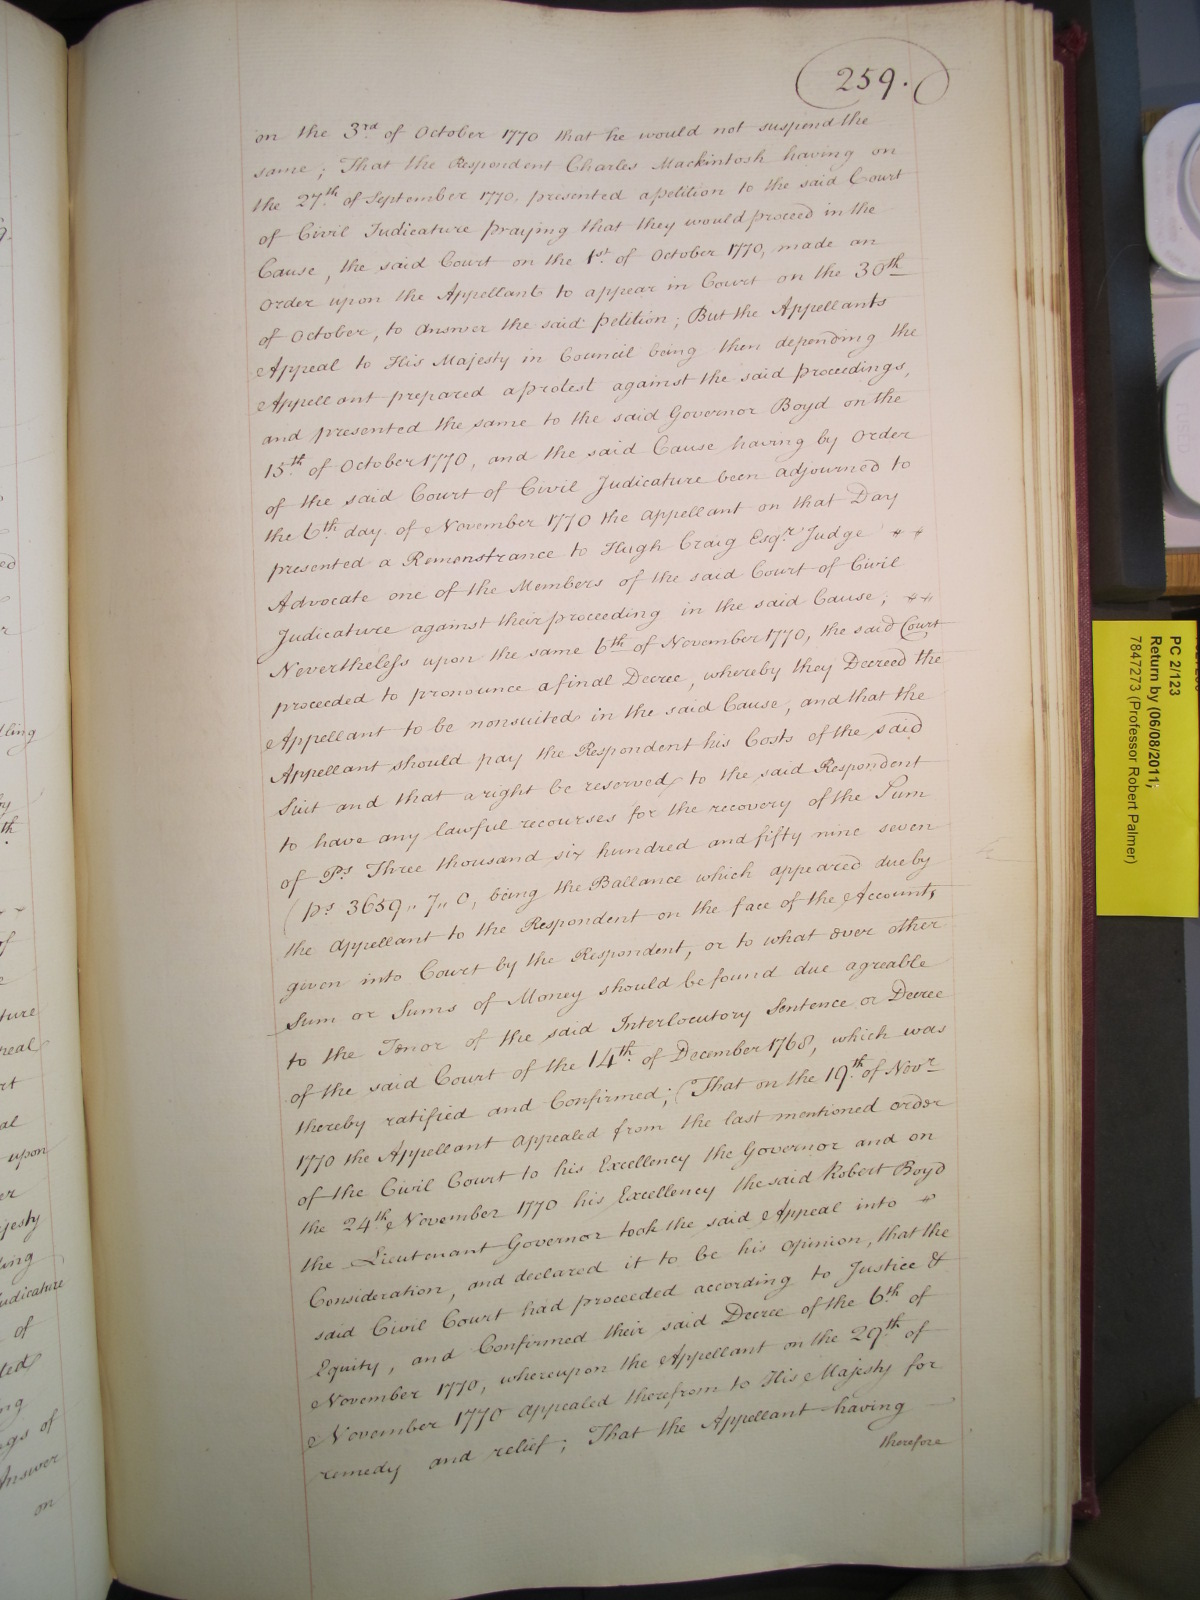 259.
on the 3rd of October 1770 that he would not suspend the
same; That the Respondent Charles Mackintosh having on
the 27th of September 1770, presented a petition to the said Court
of Civil Judicature praying that they would proceed in the
Cause, the said Court on the 1st of October 1770, made an
Order upon the Appellant to appear in Court on the 30th
of October, to answer the said petition; But the Appellants
Appeal to His Majesty in Council being then depending the
Appellant prepared a protest against the said proceedings,
and presented the same to the said Governor Boyd on the
15th of October 1770, and the said Cause having by Order
of the said Court of Civil Judicature been adjourned to
the 6th day of November 1770 the appellant on that Day
presented a Remonstrance to Hugh Craig Esqr Judge
Advocate one of the Members of the said Court of Civil
Judicature against their proceeding in the said Cause;
Nevertheless upon the same 6th of November 1770, the said Court
proceeded to pronounce a final Decree, whereby they Decreed the
Appellant to be nonsuited in the said Cause, and that the
Appellant should pay the Respondent his Costs of the said
Suit and that a right be reserved to the said Respondent
to have any lawful recourses for the recovery of the Sum
of Ps. Three thousand six hundred and fifty nine seven
(ps. 3659,, 7,, 0, being the Ballance which appeared due by
the appellant to the Respondent on the face of the Accounts
given into Court by the Respondent, or to what ever other
Sum or Sums of Money should be found due agreable
to the Tenor of the said Interlocutory Sentence or Decree
of the said Court of the 14th of December 1768, which was
thereby ratified and Confirmed; (That on the 19th of Novr
1770 the Appellant appealed from the last mentioned order
of the Civil Court to his Excellency the Governor and on
the 24th November 1770 his Excellency the said Robert Boyd
the Lieutenant Governor took the said Appeal into
Consideration, and declared it to be his opinion, that the
said Civil Court had proceeded according to Justice &
Equity, and Confirmed their said Decree of the 6th of
November 1770, whereupon the Appellant on the 29th of
November 1770 appealed therefrom to His Majesty for
remedy and relief; That the Appellant having
therefore
PC 2/123
Return by (06/08/2011;
7847273 (Professor Robert Palmer)